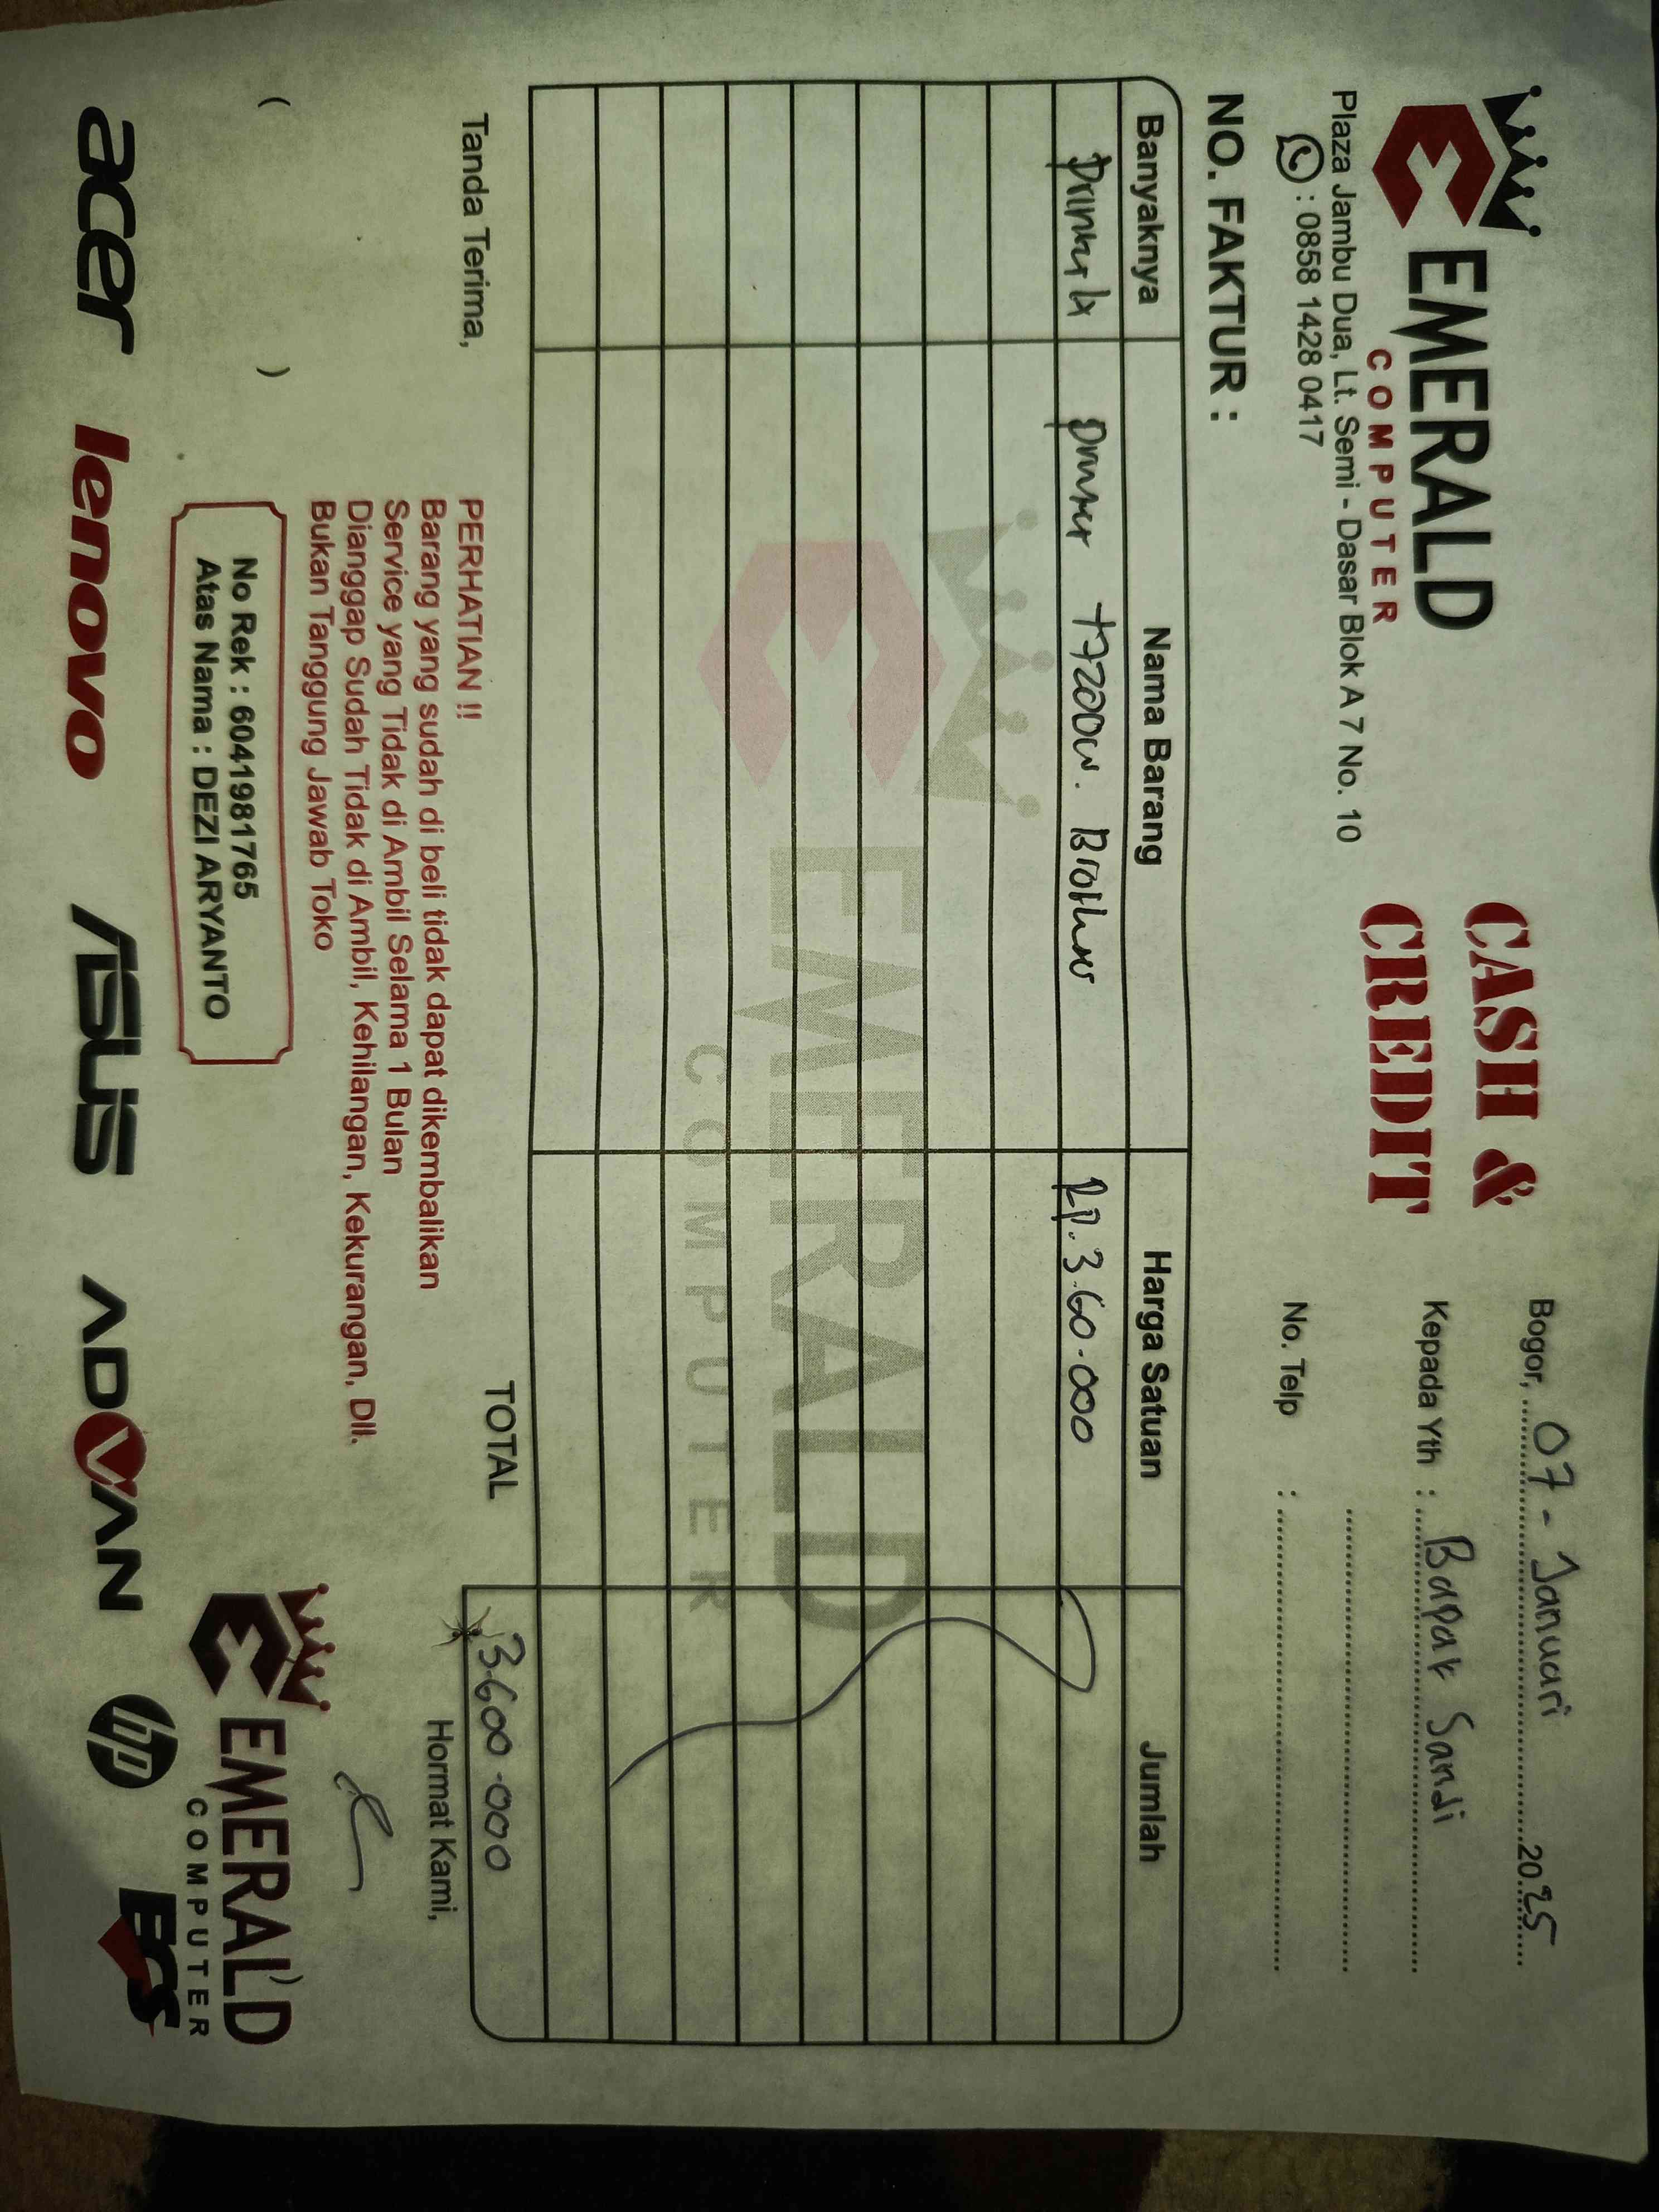 EMERALD
COMPUTER
Plaza Jambu Dua, Lt. Semi - Dasar Blok A 7 No. 10
: 0858 1428 0417
CASH &
CREDIT
Bogor, 07 - Januari 2025
Kepada Yth : Bapak Sandi
No. Telp :
NO. FAKTUR :
Banyaknya Nama Barang Harga Satuan Jumlah
Printer 1x Printer T720DW. Brother Rp. 3.60.000
EMERALD
COMPUTER
TOTAL 3.600.000
Tanda Terima,
( )
PERHATIAN !!
Barang yang sudah di beli tidak dapat dikembalikan
Service yang Tidak di Ambil Selama 1 Bulan
Dianggap Sudah Tidak di Ambil, Kehilangan, Kekurangan, Dll.
Bukan Tanggung Jawab Toko
No Rek : 6041981765
Atas Nama : DEZI ARYANTO
Hormat Kami,
EMERALD
COMPUTER
acer lenovo ASUS ADVAN hp ECS